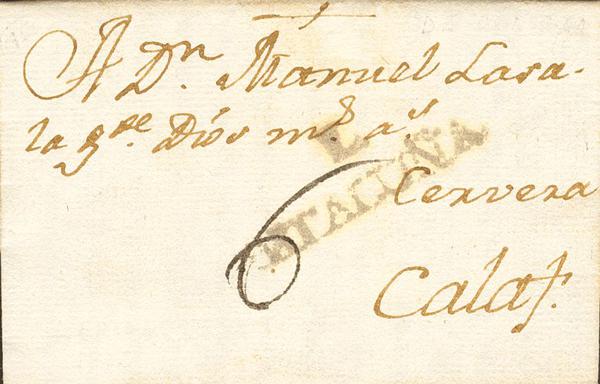 A Dn. Manuel Lasa-
la gde. Dios ms. as.
L
CATALUÑA
6
Cervera
Calaf.